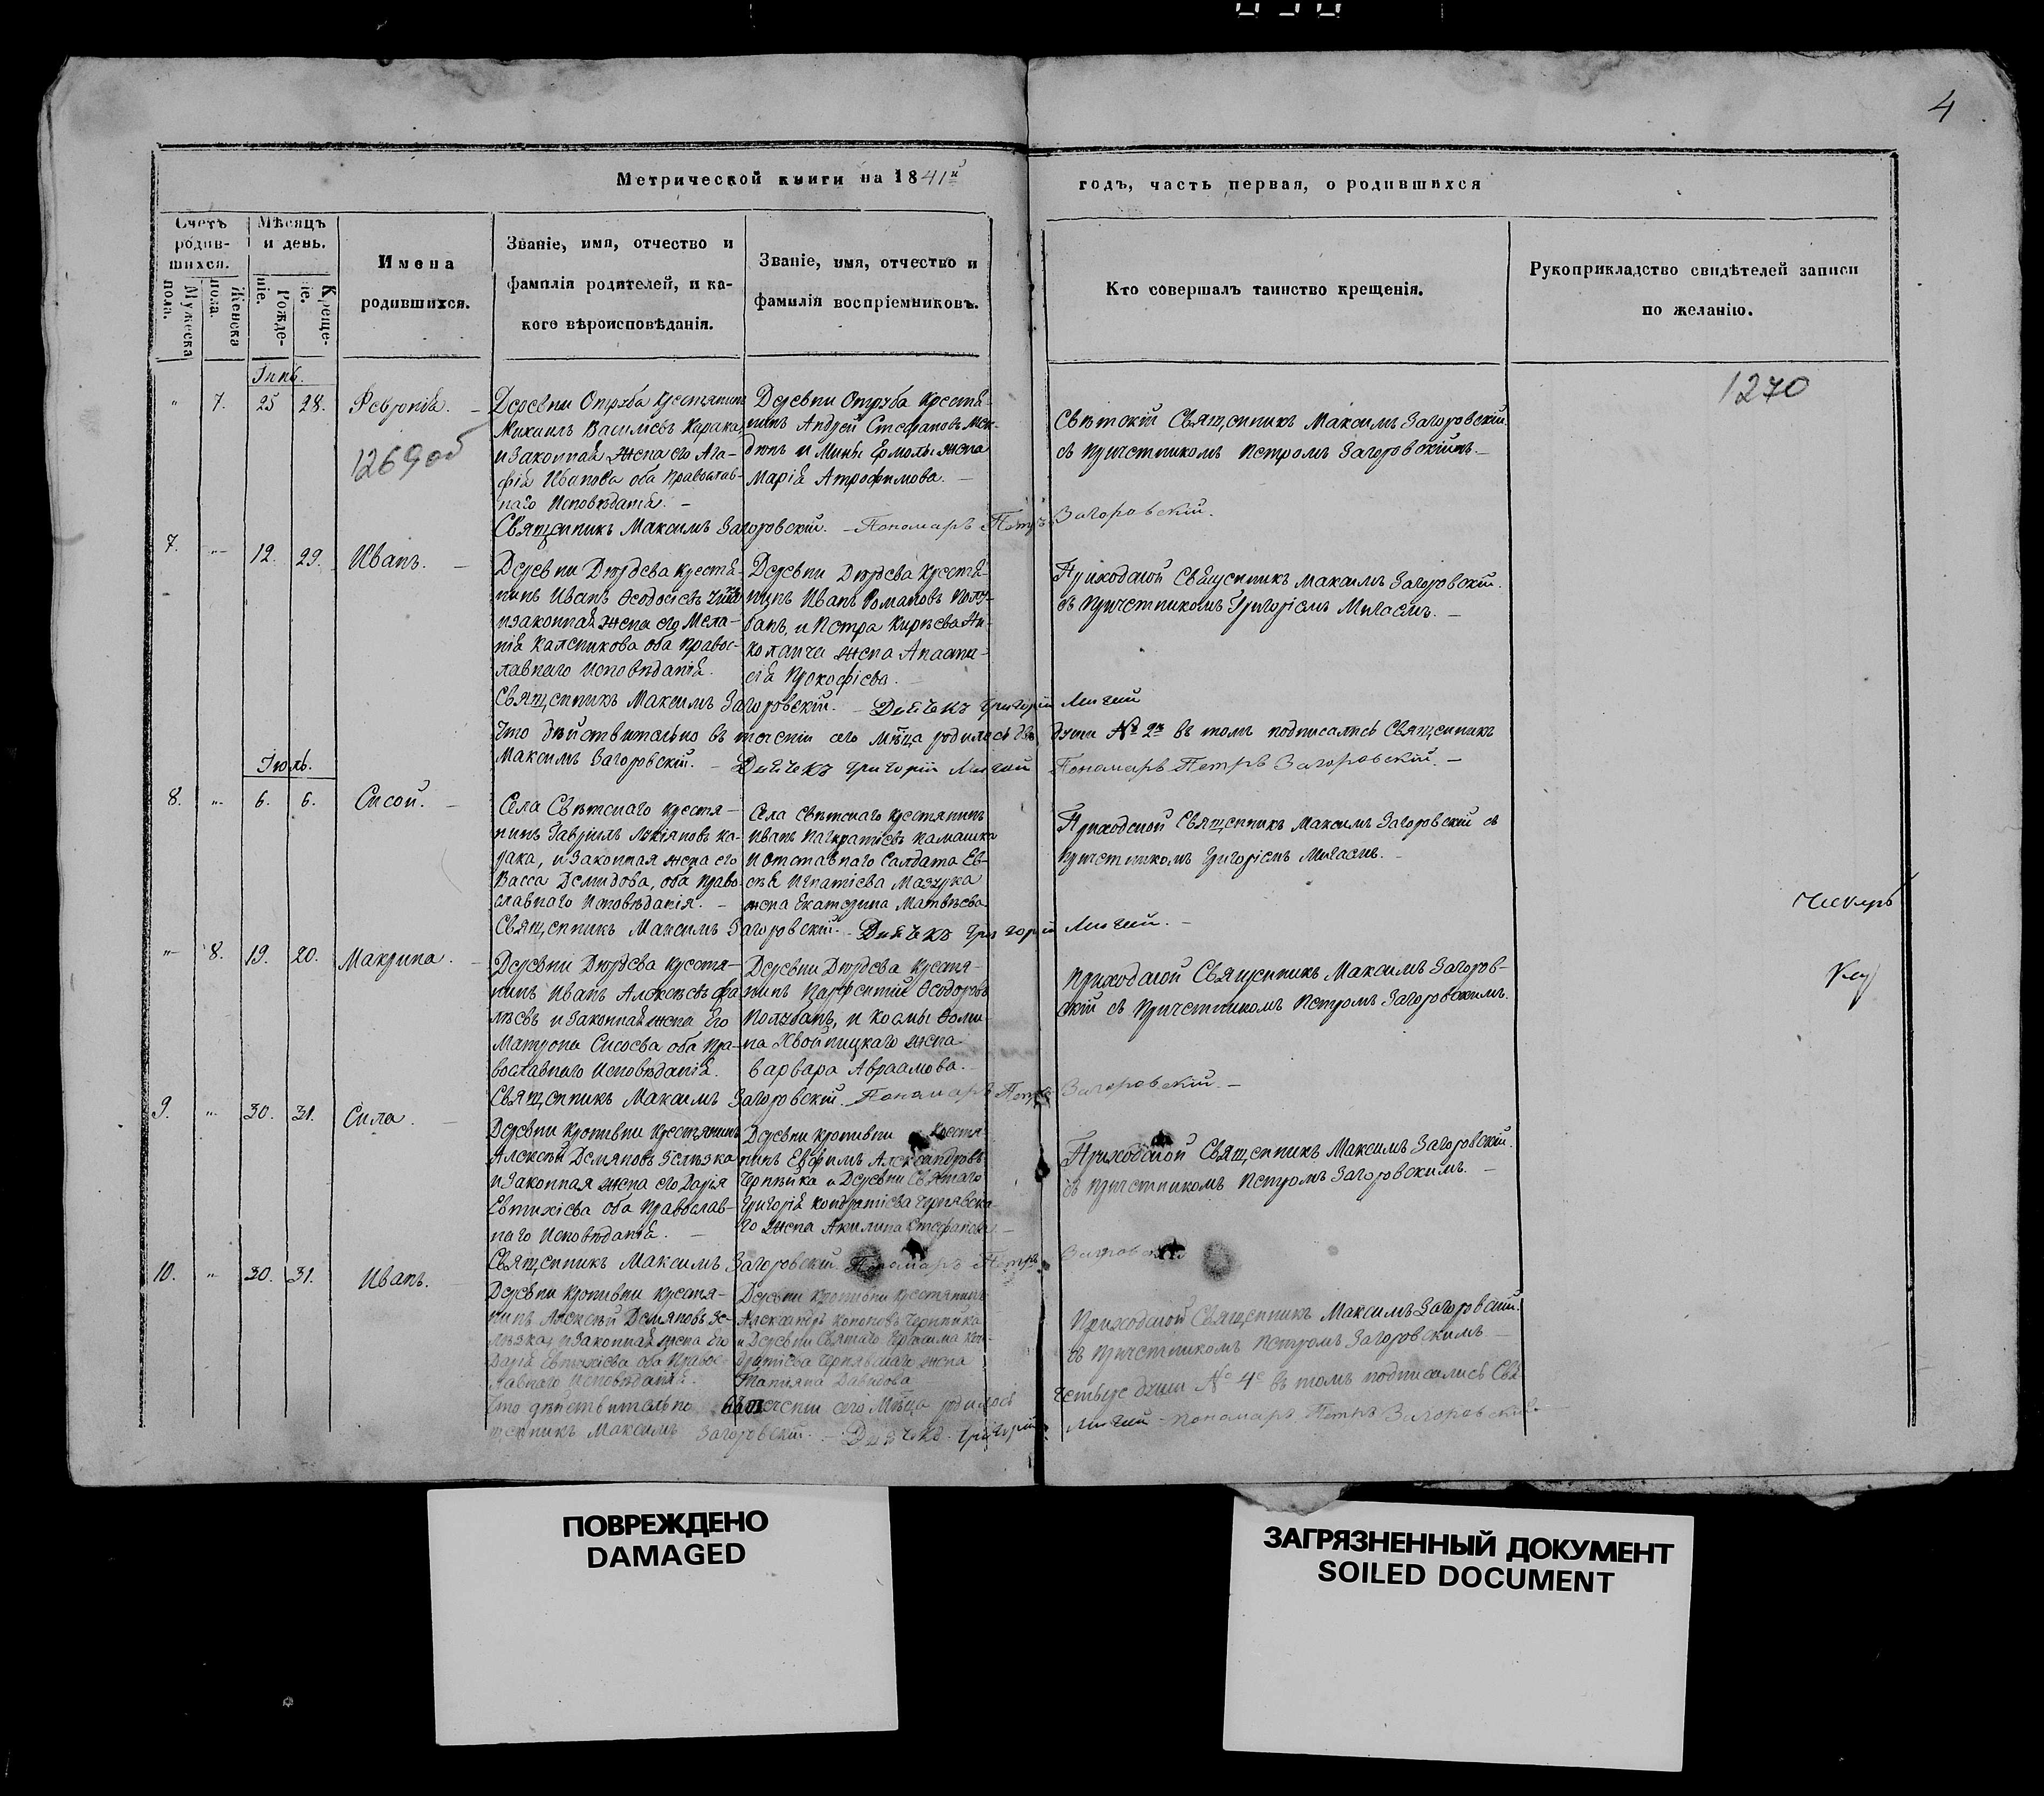 4
Метрической книги на 1841й
годъ, часть первая, о родившихся
Счетъ родив-шихся.
Мужеска пола.
Женска пола.
Мѣсяцъ и день.
Рожде-ніе.
Креще-ніе.
Имена
родившихся.
Званіе, имя, отчество и
фамилія родителей, и ка-
кого вѣроисповѣданія.
Званіе, имя, отчество и
фамилія воспріемниковъ.
Кто совершалъ таинство крещенія.
Рукоприкладство свидѣтелей записи
по желанію.
1270
Іюнь.
" 7. 25 28. Феѵронія.
1269 об
Деревни крестьянинъ
Михаилъ Васильевъ
и законная жена его Ага-
фія Иванова оба Православ-
наго Исповѣданія.
Деревни Крестья-
нинъ Андрей Стефановъ
и Мины Ермолы жена
Марія Атрофимова.
Священникъ Максимъ Загоровскій
съ причетникомъ Петромъ Загоровскимъ.
Священникъ Максимъ Загоровскій. Пономарь Петръ Загоровскій.
7. " 12. 29. Иванъ.
Деревни Крестья-
нинъ Иванъ Ѳеодосіевъ
и законная жена его Мела-
нія оба правос-
лавнаго исповѣданія.
Деревни Крестья-
нинъ Иванъ Романовъ Полу-
банъ, и Петра
жена Анаста-
сія Прокофіева.
Приходской Священникъ Максимъ Загоровскій.
съ причетникомъ Григоріемъ Мигаемъ.
Священникъ Максимъ Загоровскій. Дьячекъ Григорій Мигай
Что дѣйствительно въ теченіи сего Мѣсца родилось двѣ души № 2й въ томъ подписались Священникъ
Максимъ Загоровскій. Дьячекъ Григорій Мигай Пономарь Петръ Загоровскій.
Іюль.
8. " 6. 6. Сисой.
Села крестья-
нинъ Гавріилъ Ка-
рака, и законная жена его
Васса Демидова, оба право-
славнаго Исповѣданія.
Села крестьянинъ
Иванъ Панкратіевъ Камашка
и отставнаго Салдата Ев-
сѣя Игнатіева Мазурка
жена Екатерина Матвѣева
Приходской Священникъ Максимъ Загоровскій съ
причетникомъ Григоріемъ Мигаемъ.
Священникъ Максимъ Загоровскій. Дьячекъ Григорій Мигай.
" 8. 19. 20. Макрина.
Деревни Крестья-
нинъ Иванъ Алексѣевъ
и законная жена Его
Матрона Сисоева оба пра-
вославнаго Исповѣданія.
Деревни Крестья-
нинъ Парфентій Ѳеодоровъ
Полубанъ, и Космы Ѳоми-
на Хвойницкаго жена
Варвара Авраамова.
Приходской Священникъ Максимъ Загоров-
скій съ Причетникомъ Петромъ Загоровскимъ.
Священникъ Максимъ Загоровскій. Пономарь Петръ Загоровскій.
9. " 30. 31. Сила.
Деревни Кропивни Крестьянинъ
Алексѣй Демяновъ
и законная жена его Дарія
Евтихіева оба Православ-
наго Исповѣданія.
Деревни Кропивни Крестья-
нинъ Ефимъ Александровъ
и Деревни Святаго
Григорія Кондратіева Чернявска-
го жена Акилина Стефанова.
Приходской Священникъ Максимъ Загоровскій.
съ причетникомъ Петромъ Загоровскимъ.
Священникъ Максимъ Загоровскій. Пономарь Петръ Загоровскій
10. " 30. 31. Иванъ.
Деревни Кропивни Крестья-
нинъ Алексѣй Демяновъ
и законная жена Его
Дарія Евтихіева оба Правос-
лавнаго Исповѣданія.
Деревни Кропивни Крестьянинъ
Александръ Кононовъ
и Деревни Святаго Герасима Кон-
дратіева Чернявскаго жена
Татіяна Давидова
Приходской Священникъ Максимъ Загоровскій.
съ причетникомъ Петромъ Загоровскимъ.
Что дѣйствительно въ теченіи сего Мѣсца родилось четыре души № 4е въ томъ подписались Свя-
щенникъ Максимъ Загоровскій. Дьячекъ Григорій Мигай Пономарь Петръ Загоровскій
ПОВРЕЖДЕНО
DAMAGED
ЗАГРЯЗНЕННЫЙ ДОКУМЕНТ
SOILED DOCUMENT